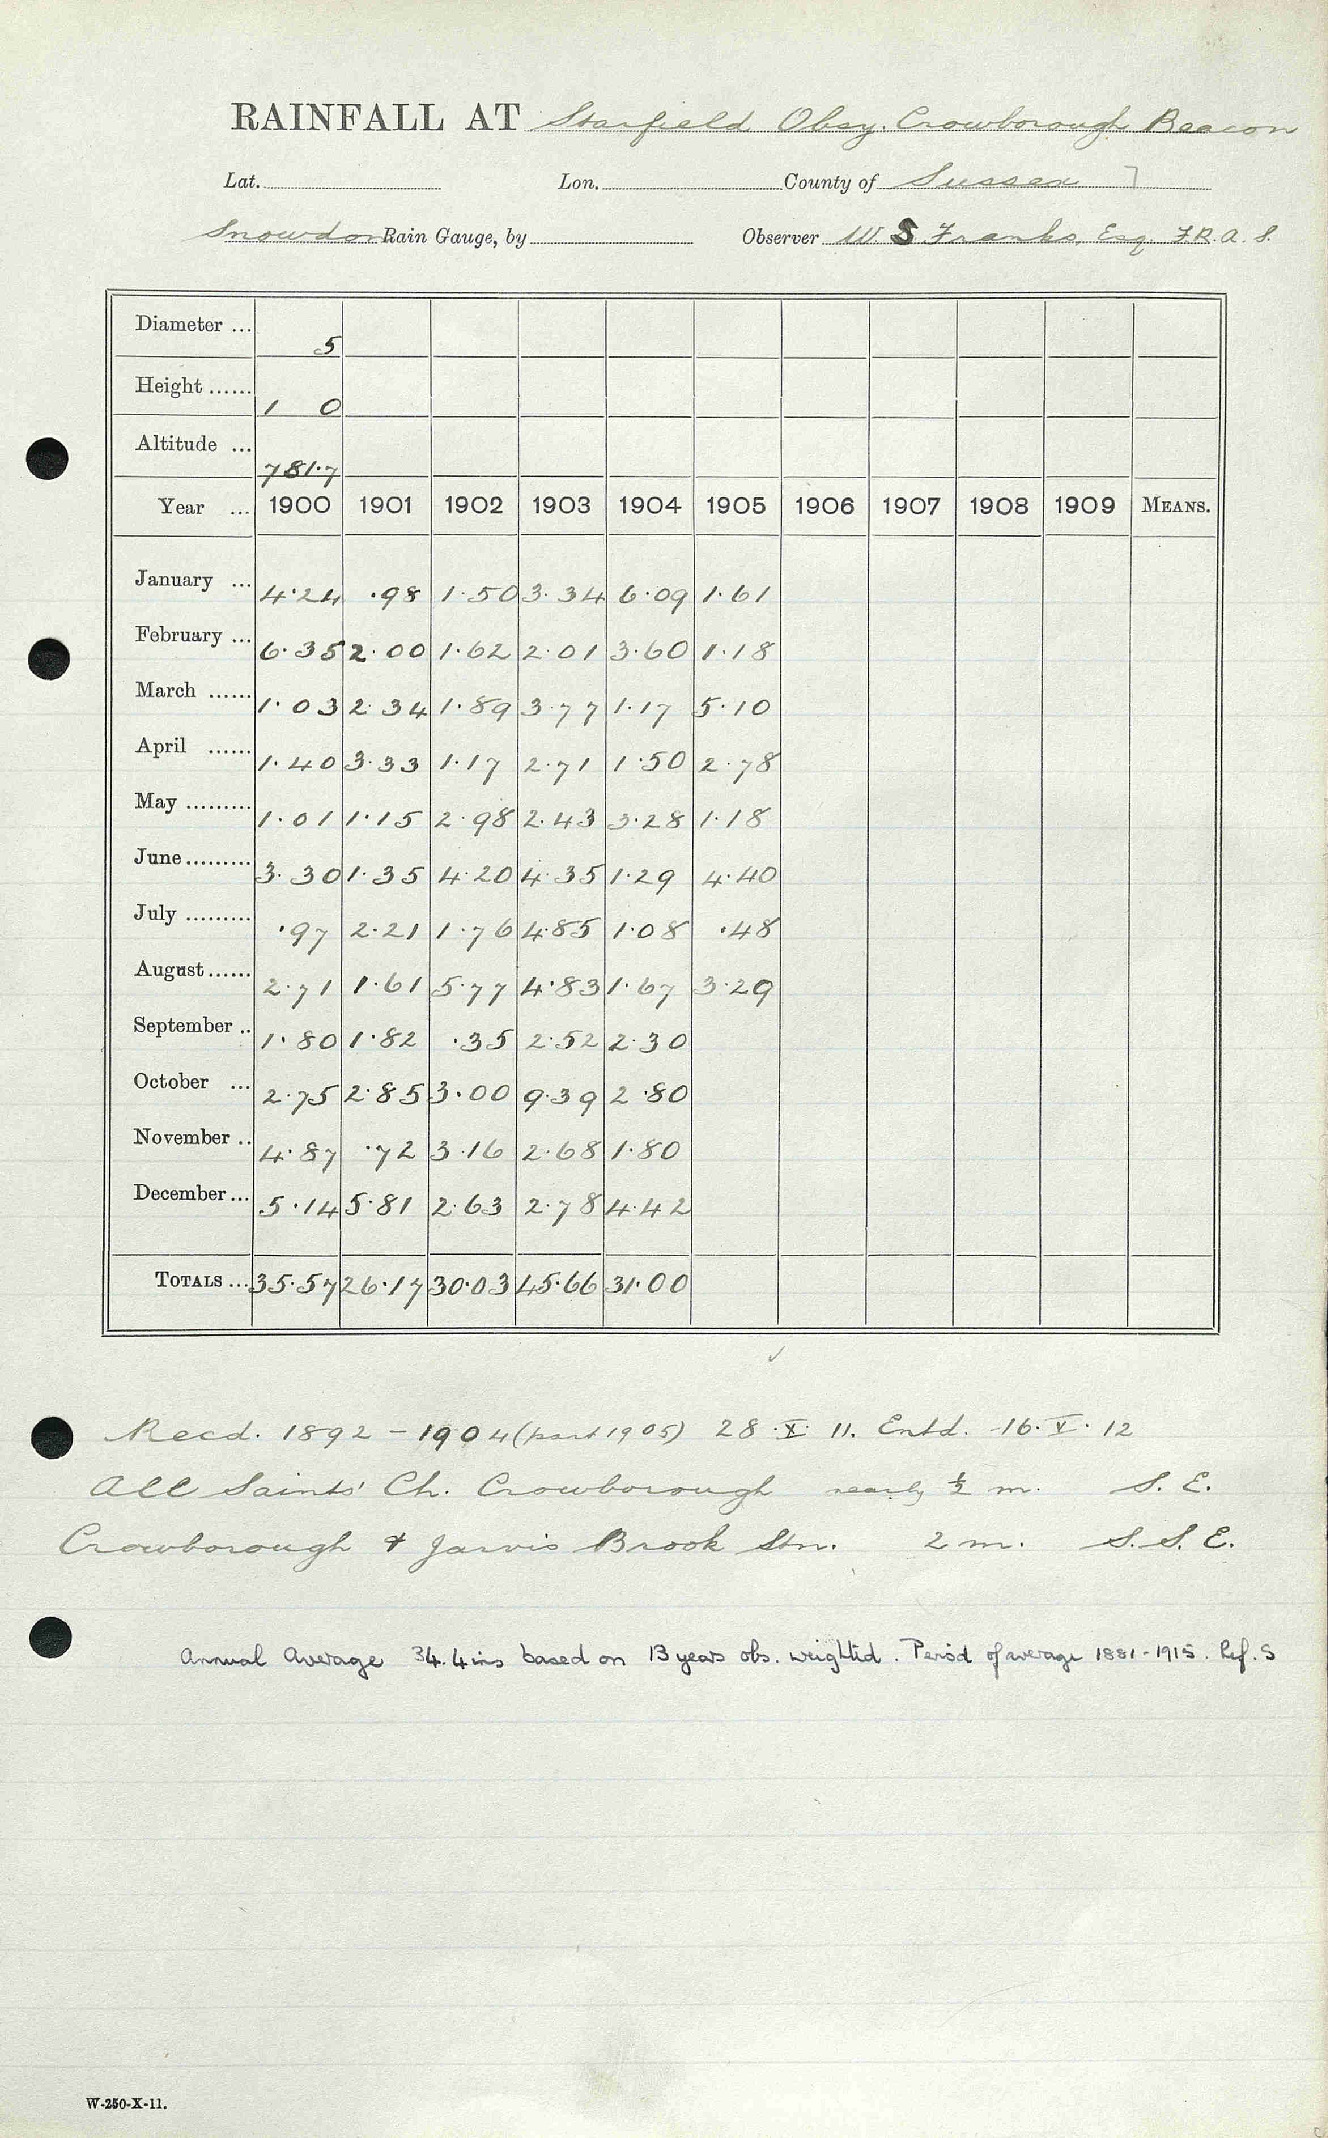 RAINFALL AT Starfield Obsy. Crowborough Beacon
Lat. Lon. County of Sussex 7
Snowdon Rain Gauge, by Observer W. S. Franks, Esq. F.R.A.S.
Diameter ... 5
Height ...... 1 0
Altitude ... 781.7
Year ... 1900 1901 1902 1903 1904 1905 1906 1907 1908 1909 MEANS.
January ... 4.24 .98 1.50 3.34 6.09 1.61
February ... 6.35 2.00 1.62 2.01 3.60 1.18
March ...... 1.03 2.34 1.89 3.77 1.17 5.10
April ...... 1.40 3.33 1.17 2.71 1.50 2.78
May ......... 1.01 1.15 2.98 2.43 3.28 1.18
June ......... 3.30 1.35 4.20 4.35 1.29 4.40
July ......... .97 2.21 1.76 4.85 1.08 .48
August ...... 2.71 1.61 5.77 4.83 1.67 3.29
September .. 1.80 1.82 .35 2.52 2.30
October ... 2.75 2.85 3.00 9.39 2.80
November .. 4.87 .72 3.16 2.68 1.80
December ... 5.14 5.81 2.63 2.78 4.42
TOTALS ... 35.57 26.17 30.03 45.66 31.00
Recd. 1892 - 1904 (part 1905) 28.X.11. Entd. 16.V.12
All Saints' Ch. Crowborough nearly ½ m. S. E.
Crowborough & Jarvis Brook Stn. 2 m. S. S. E.
Annual Average 34.4 ins based on 13 years obs. weighted. Period of average 1881-1915. Ref. S
W-250-X-11.